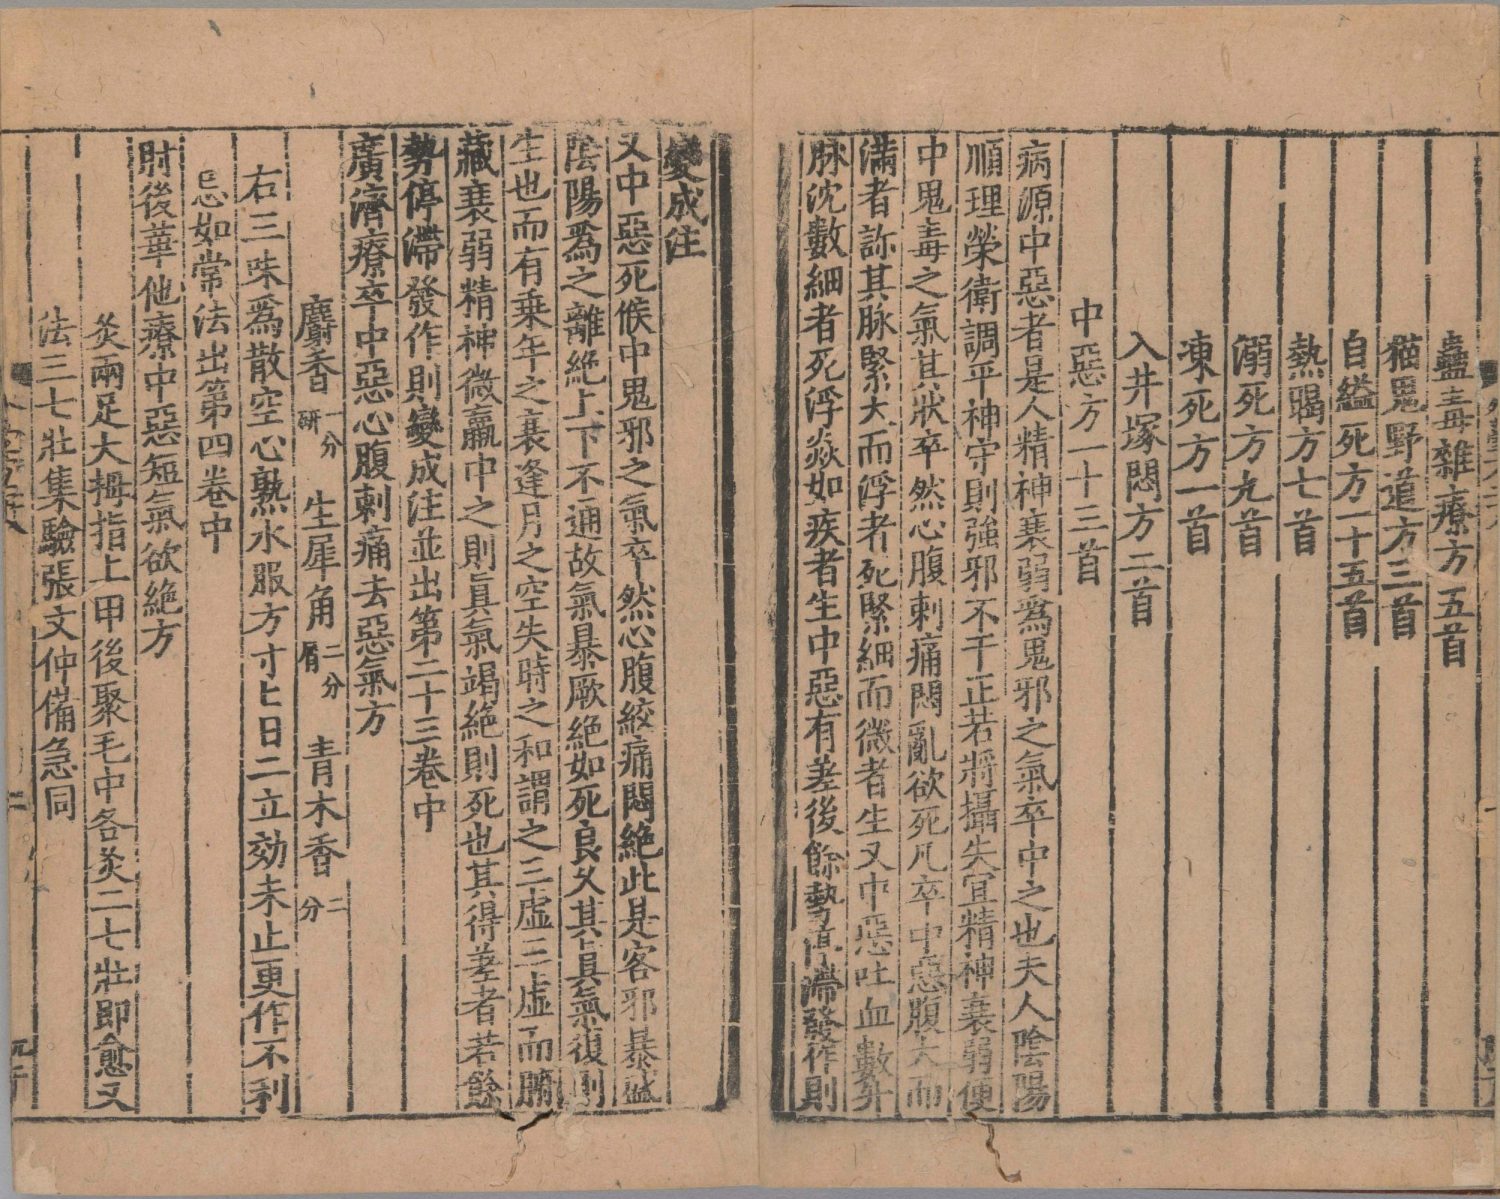 蠱毒雜療方五首
猫鬼野道方三首
自縊死方一十五首
熱暍方七首
溺死方九首
凍死方一首
入井塚悶方二首
中惡方一十三首
病源中惡者是人精神衰弱爲鬼邪之氣卒中之也夫人陰陽
順理榮衛調平神守則強邪不干正若將攝失宜精神衰弱便
中鬼毒之氣其狀卒然心腹刺痛悶亂欲死凡卒中惡腹大而
滿者診其脉緊大而浮者死緊細而微者生又中惡吐血數升
脉沈數細者死浮焱如疾者生中惡有差後餘勢停滯發作則
變成注
又中惡死候中鬼邪之氣卒然心腹絞痛悶絶此是客邪暴盛
陰陽爲之離絶上下不通故氣暴厥絶如死良久其真氣復則
生也而有乗年之衰逢月之空失時之和謂之三虛三虛而腑
藏衰弱精神微羸中之則真氣竭絶則死也其得差者若餘
勢停滯發作則變成注並出第二十三卷中
廣濟療卒中惡心腹刺痛去惡氣方
麝香一分研 生犀角二分屑 青木香二分
右三味爲散空心熟水服方寸匕日二立効未止更作不利
忌如常法出第四卷中
肘後華他療中惡短氣欲絶方
灸兩足大拇指上甲後聚毛中各灸二七壯即愈又
法三七壯集驗張文仲備急同
二